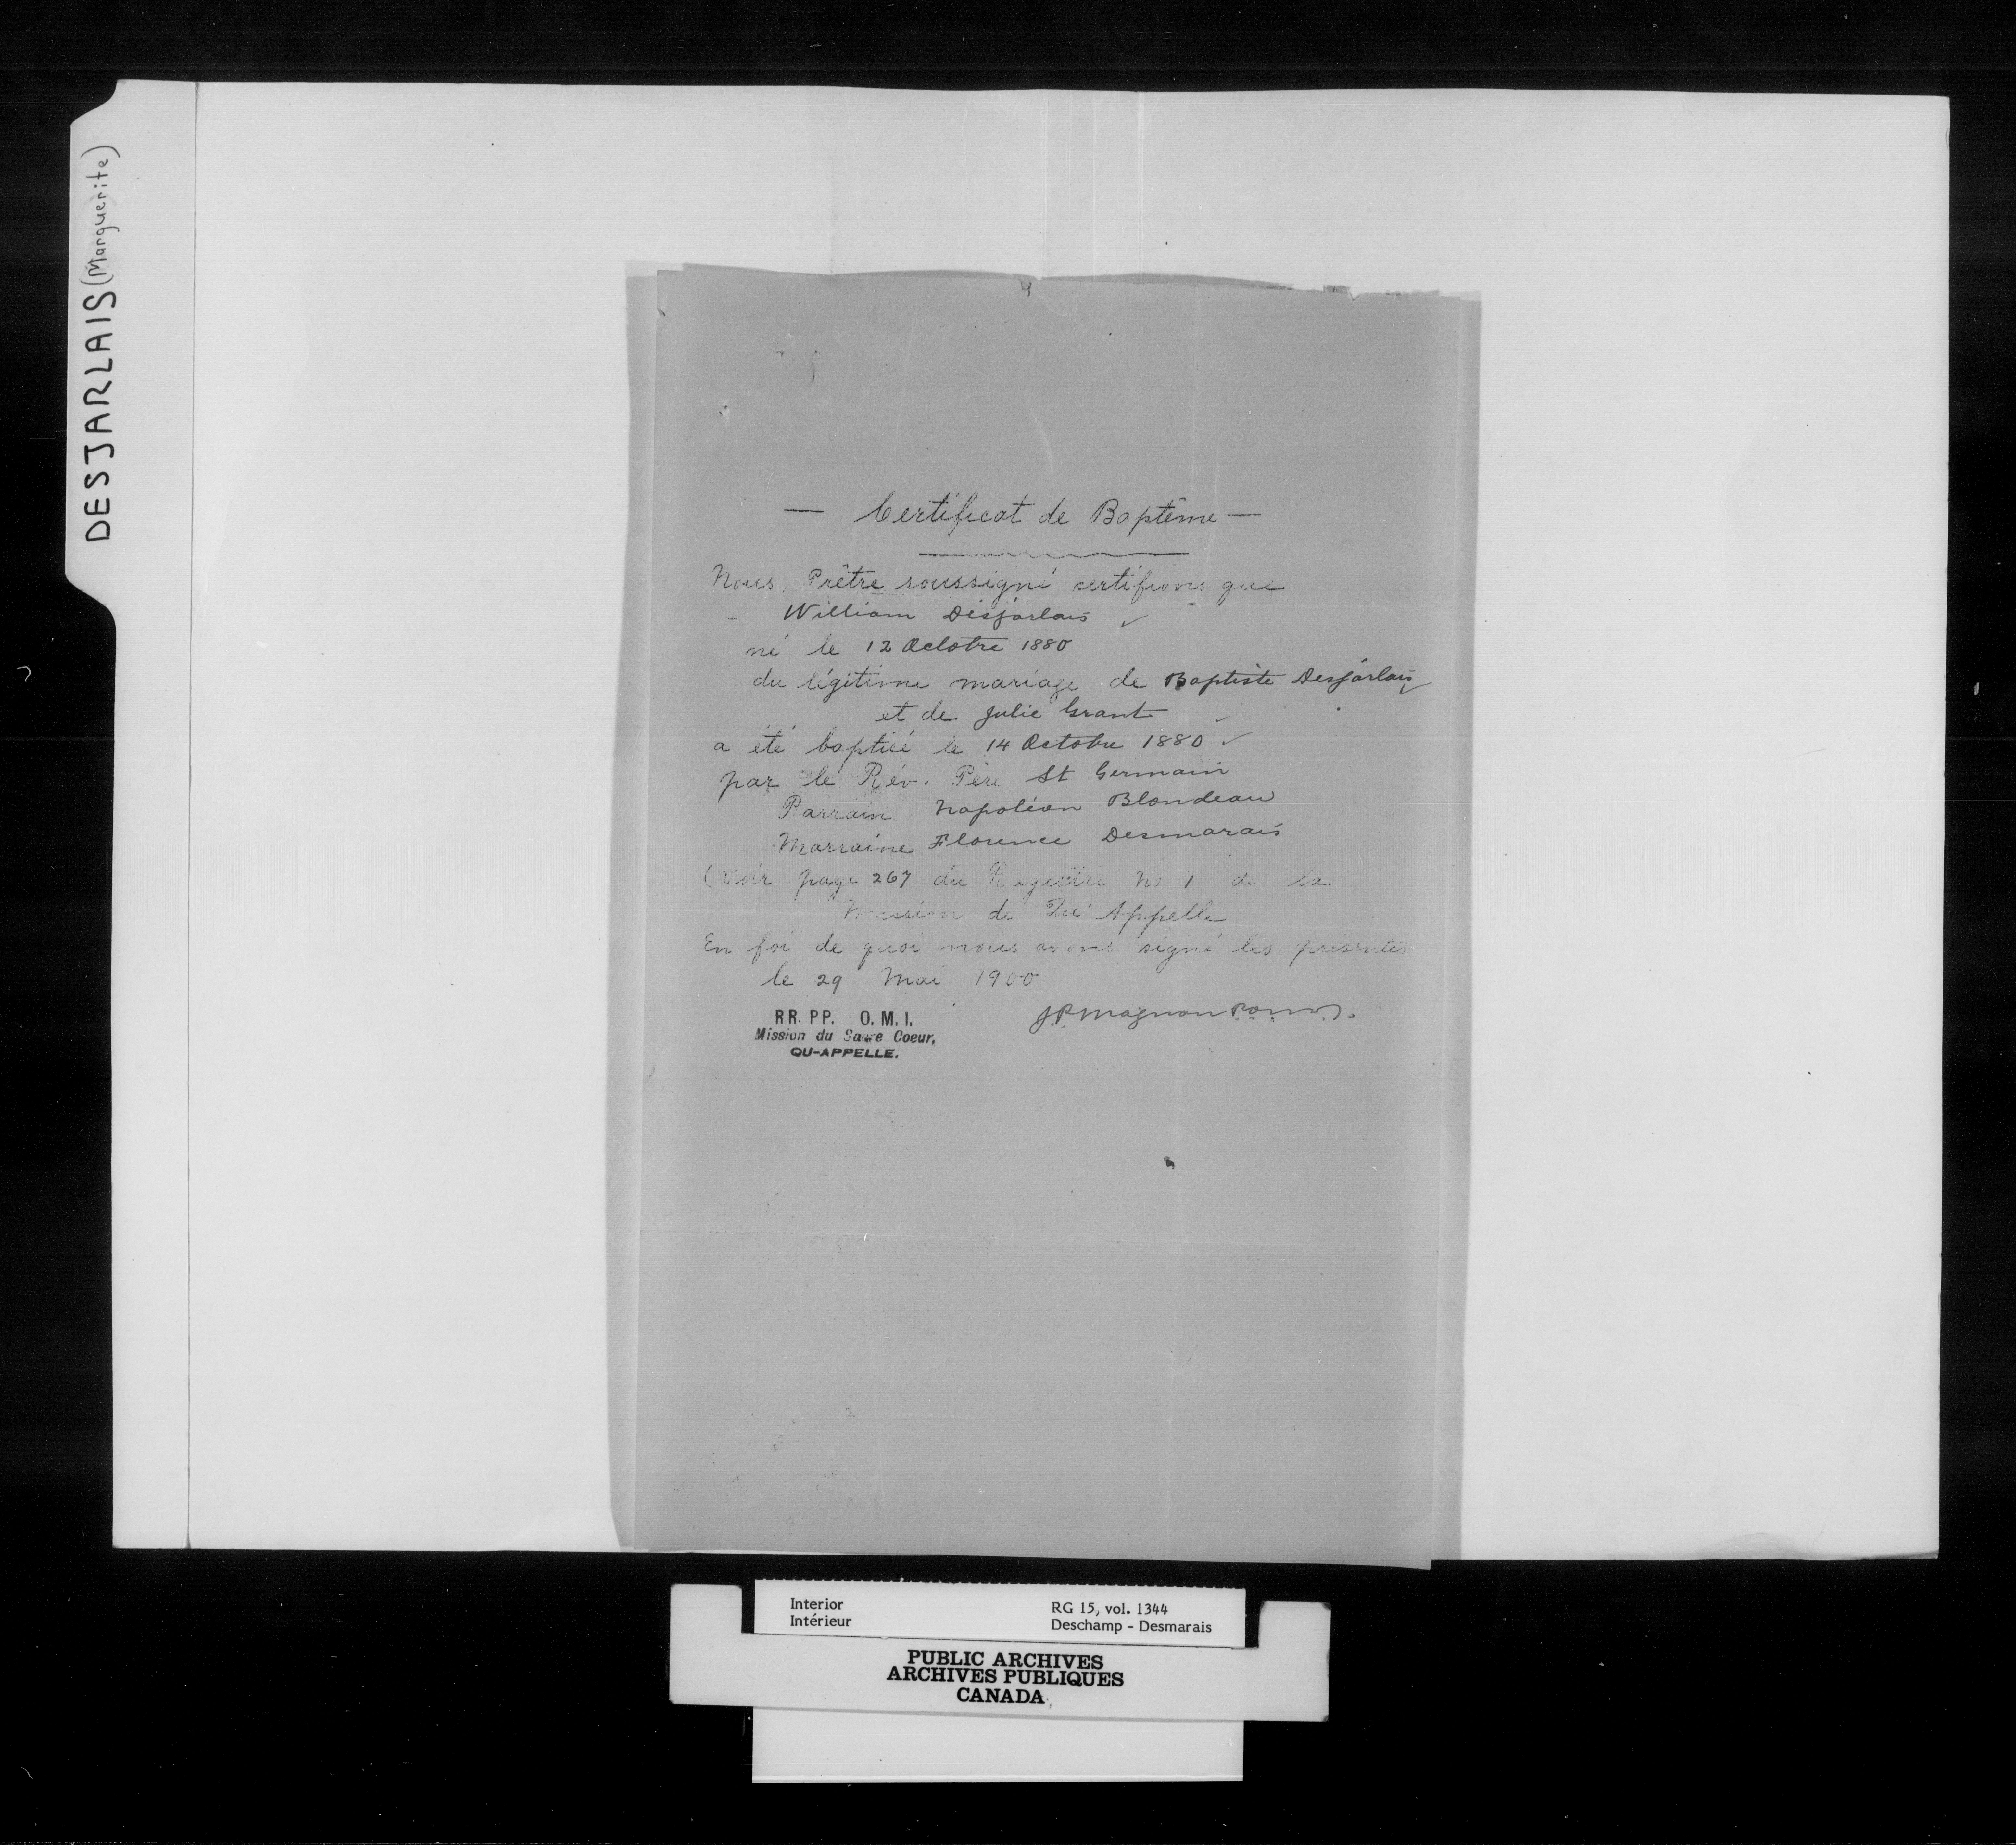 DESJARLAIS (Marguerite)
— Certificat de Baptême —
Nous, Prêtre soussigné certifions que
William Desjarlais
né le 12 Octobre 1880
du légitime mariage de Baptiste Desjarlais
et de Julie Grant
a été baptisé le 14 Octobre 1880
par le Rév. Père St Germain
Parrain Napoléon Blondeau
Marraine Florence Desmarais
(Voir page 267 du Registre No 1 de la
Mission de Qu'Appelle
En foi de quoi nous avons signé les présentes
le 29 Mai 1900
J.P. Magnan
RR. PP. O. M. I.
Mission du Sacre Coeur,
QU-APPELLE.
Interior
Intérieur
RG 15, vol. 1344
Deschamp - Desmarais
PUBLIC ARCHIVES
ARCHIVES PUBLIQUES
CANADA